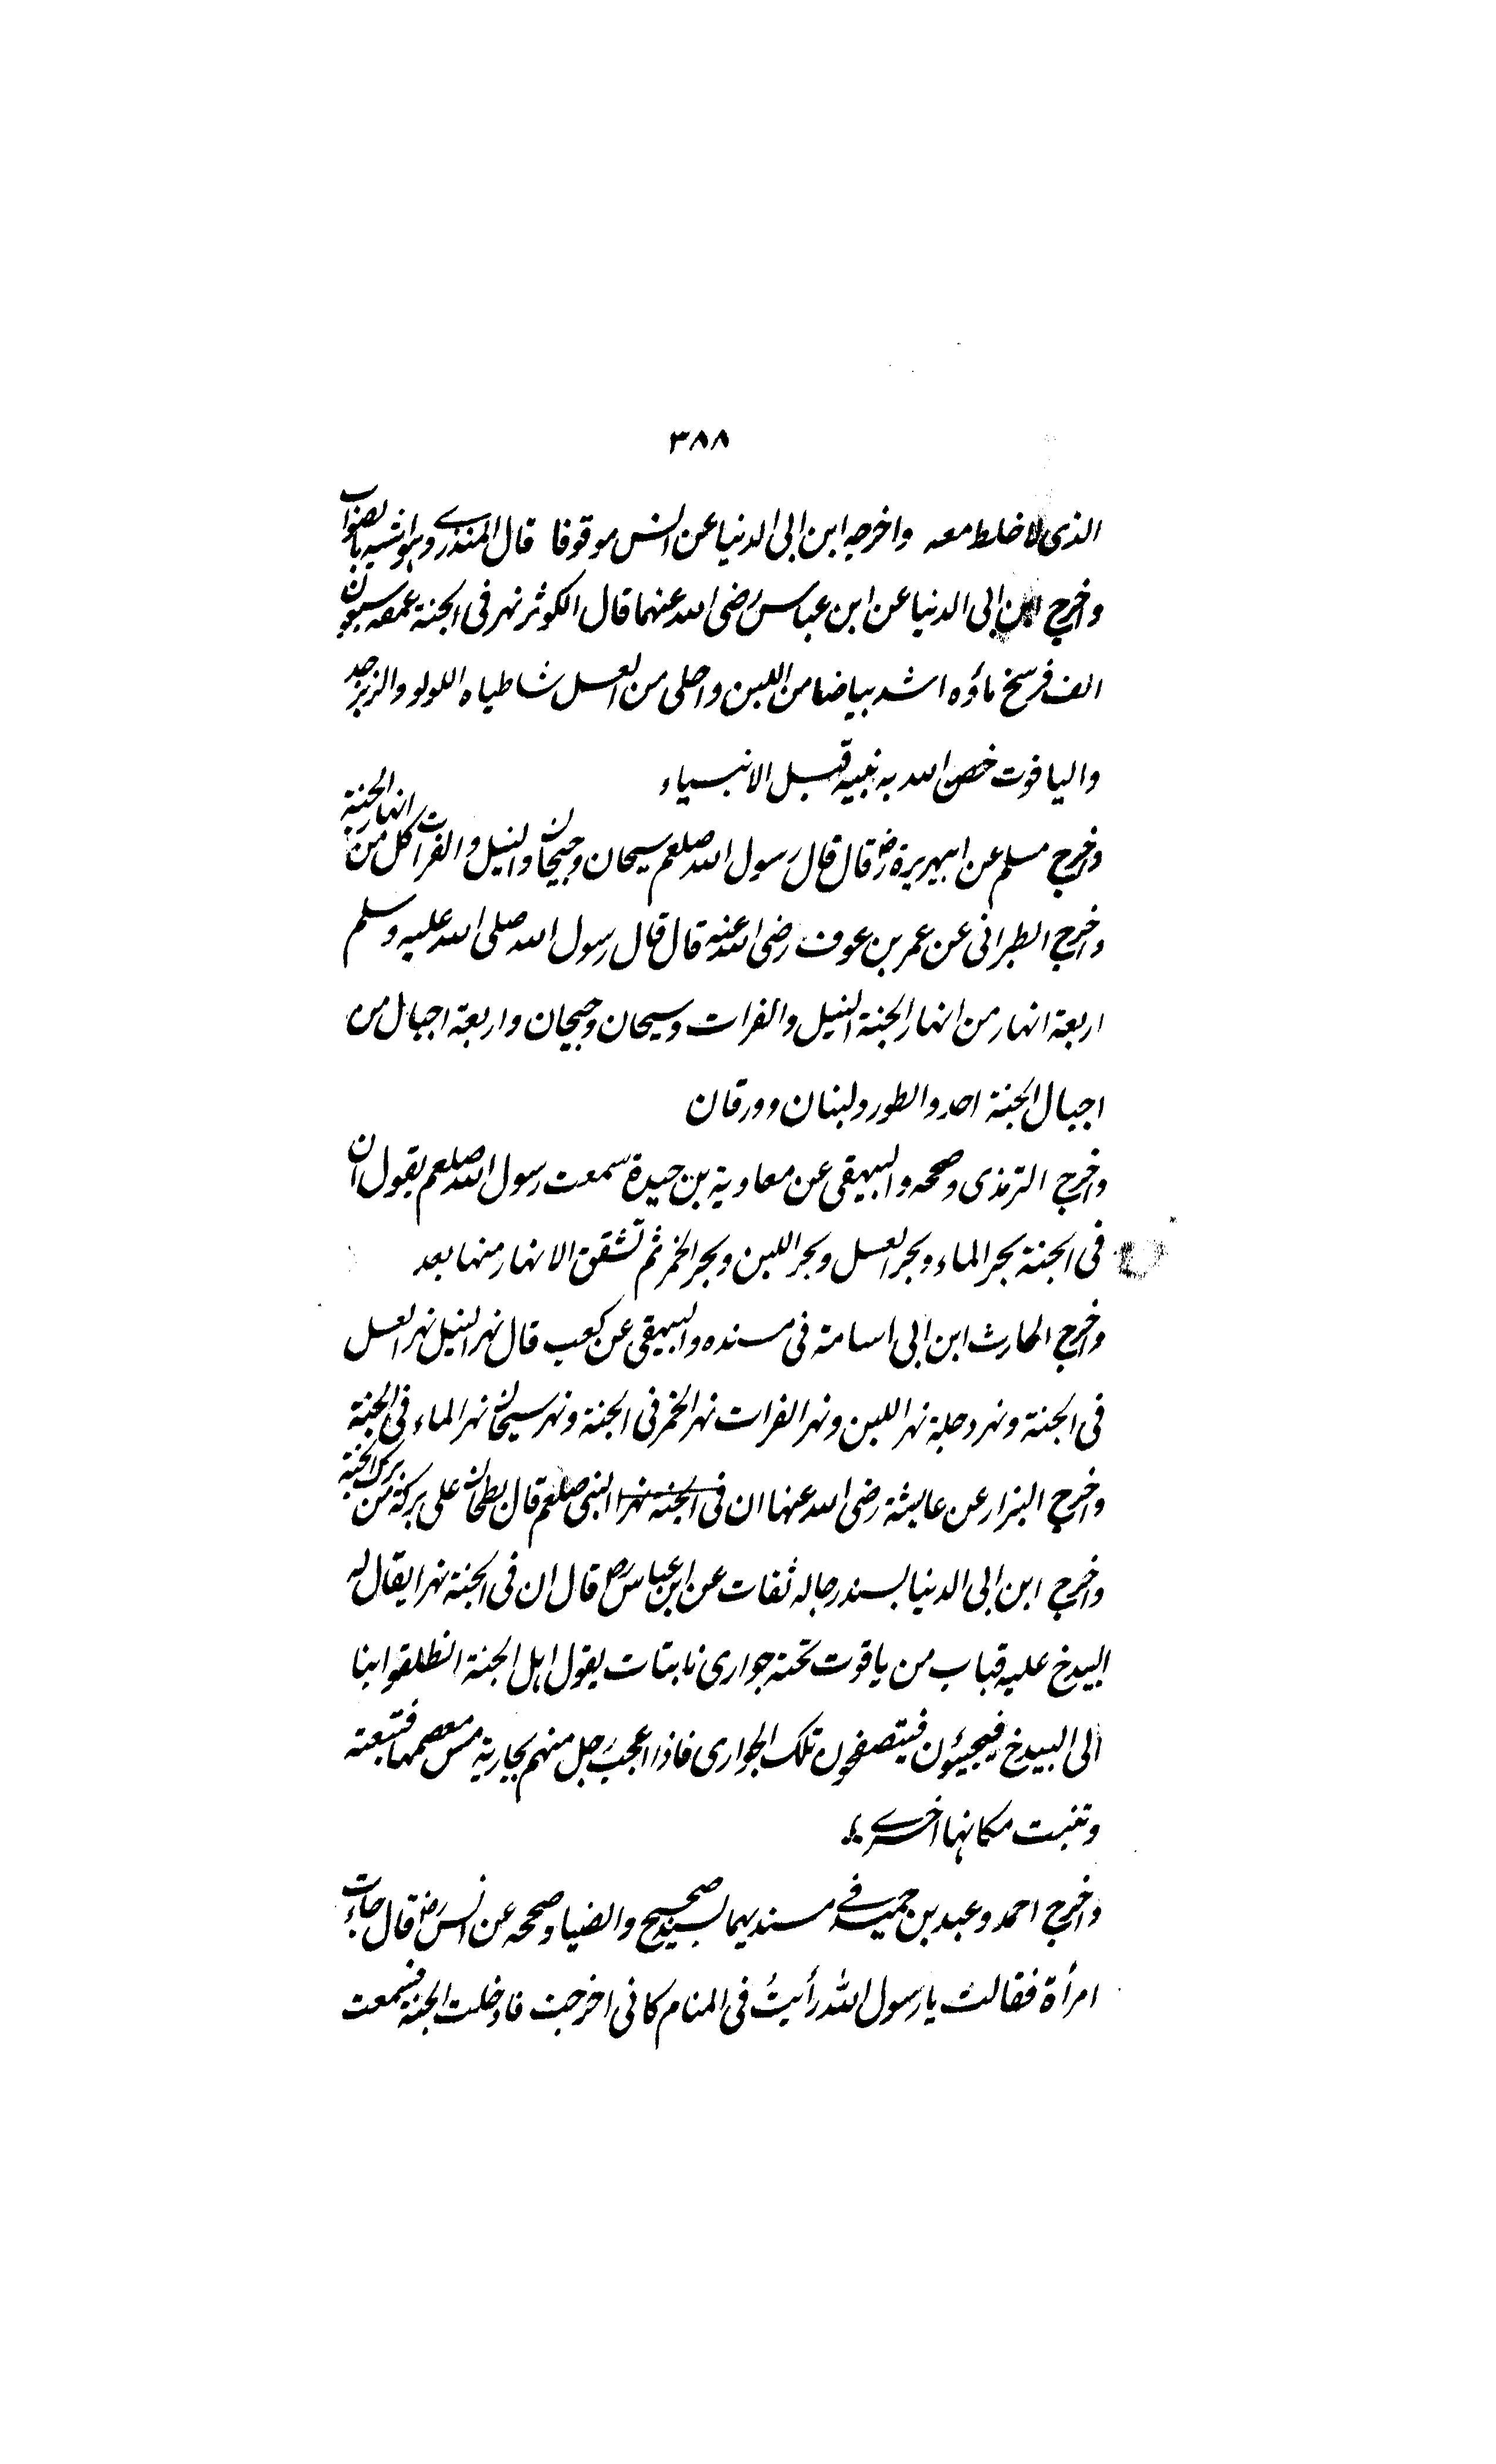 ٣٨٨
الذی لا خلط معہ واخرجہ ابن ابی الدنیا عن انس موقوفا قال المنذری وہو اشبہ بالصواب
واخرج ابن ابی الدنیا عن ابن عباس رضی اللہ عنہما قال الکوثر نہر فی الجنۃ عمقہ سبعون
الف فرسخ ماؤہ اشد بیاضا من اللبن واحلی من العسل شاطیاہ اللولو والزبرجد
والیاقوت خص اللہ بہ نبیہ قبل الانبیاء
واخرج مسلم عن ابیہریرۃ رض قال قال رسول اللہ صلعم سیحان وجیحان والنیل والفرات کل من انہار الجنۃ
واخرج الطبرانی عن عمر بن عوف رضی اللہ عنہ قال قال رسول اللہ صلی اللہ علیہ وسلم
اربعۃ انہار من انہار الجنۃ النیل والفرات وسیحان وجیحان واربعۃ اجبال من
اجبال الجنۃ احد والطور ولبنان وورقان
واخرج الترمذی وصححہ والبیہقی عن معاویۃ بن حیدۃ سمعت رسول اللہ صلعم یقول ان
فی الجنۃ بحر الماء وبحر العسل وبحر اللبن وبحر الخمر ثم تشقق الانہار منہا بعد
واخرج الحارث ابن ابی اسامۃ فی مسندہ والبیہقی عن کعب قال نہر النیل نہر العسل
فی الجنۃ ونہر دجلۃ نہر اللبن ونہر الفرات نہر الخمر فی الجنۃ ونہر سیحان نہر الماء فی الجنۃ
واخرج البزار عن عایشۃ رضی اللہ عنہا ان فی الجنۃ نہرا النبی صلعم قال بطحان علی برکۃ من برک الجنۃ
واخرج ابن ابی الدنیا بسند رجالہ ثقات عن ابن عباس رض قال ان فی الجنۃ نہرا یقال لہ
البیدخ علیہ قباب من یاقوت تحتہ جواری نابتات یقول اہل الجنۃ انطلقوا بنا
الی البیدخ فیجیئون فیتصفحون تلک الجواری فاذا اعجب رجل منہم بجاریۃ مس معصمہا فتبعتہ
وتنبت مکانہا اخری
واخرج احمد وعبد بن حمید فی مسندیہما بسند صحیح والضیا وصححہ عن انس رض قال جاءت
امرأۃ فقالت یا رسول اللہ رأیتُ فی المنام کانی اخرجت فادخلت الجنۃ فسمعت